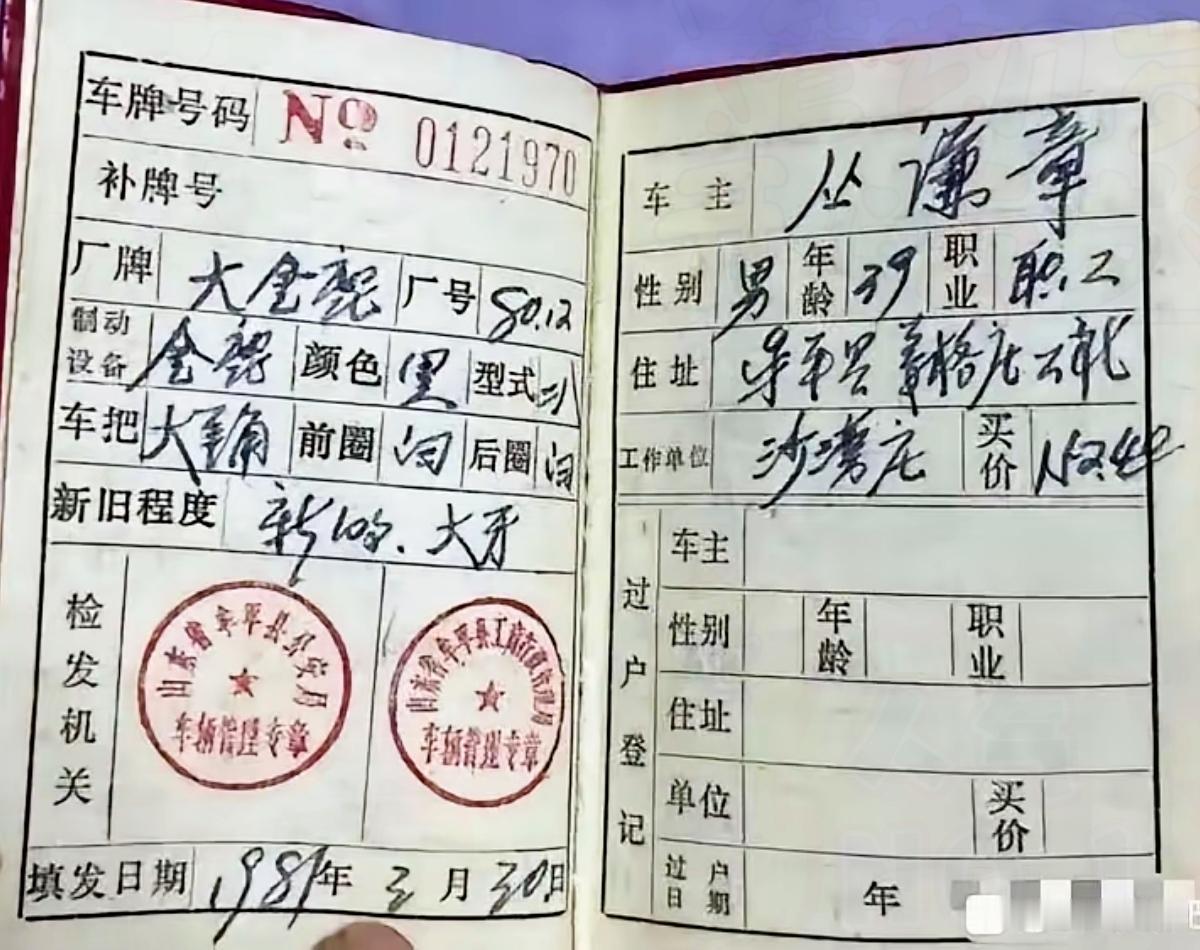 车牌号码 № 0121970
补牌号
厂牌 大金鹿 厂号 80.12
制动设备 全 颜色 黑 型式
车把 大 前圈 白 后圈 白
新旧程度 新的、大牙
检发机关
山东省牟平县公安局
车辆管理专章
山东省牟平县工商行政管理局
车辆管理专章
填发日期 1981年 3月 30日
车主 丛谦章
性别 男 年龄 39 职业 职工
住址 牟平县莒格庄公社
工作单位 沙湾庄 买价
过户登记
车主
性别 年龄 职业
住址
单位 买价
过户日期 年